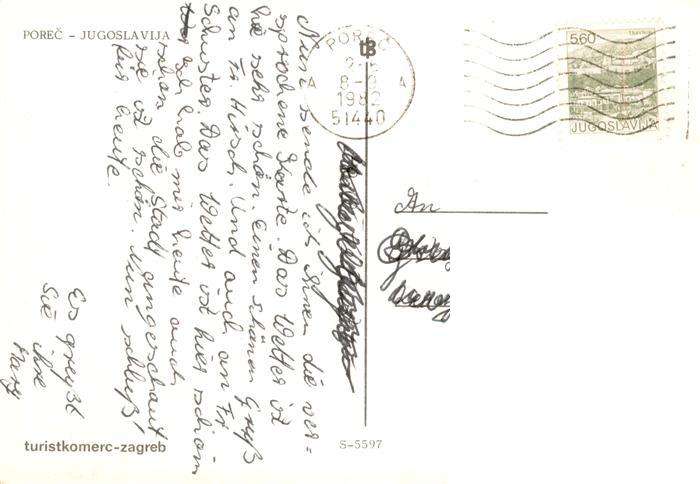 POREČ – JUGOSLAVIJA
Nun sende ich Ihnen die ver=
sprochene Karte. Das Wetter ist
hie sehr schön. Einen schönen Gruß
an Fr. Hirsch. Und auch an Fr
Schuster. Das Wetter ist hier schön
Ich hab mir heute auch
schon die Stadt angeschaut
sie ist schön. Nun schluß!
für heute.
Es grüßt
Sie ihre
turistkomerc-zagreb
S-5597
POREČ
A A
1982
51440
5.60
JUGOSLAVIJA
An